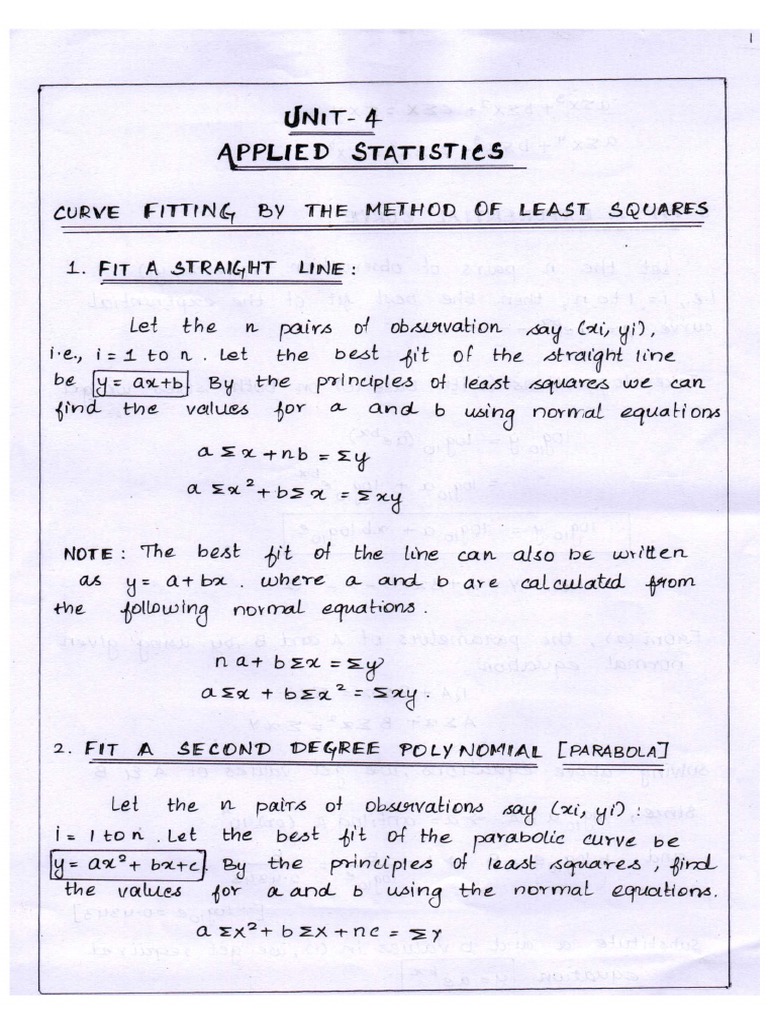 1
UNIT-4
APPLIED STATISTICS
CURVE FITTING BY THE METHOD OF LEAST SQUARES
1. FIT A STRAIGHT LINE:
Let the n pairs of observation say (xi, yi),
i.e., i = 1 to n. Let the best fit of the straight line
be y = ax+b By the principles of least squares we can
find the values for a and b using normal equations
a Σx + nb = Σy
a Σx² + bΣx = Σxy
NOTE: The best fit of the line can also be written
as y = a+bx. where a and b are calculated from
the following normal equations.
n a + b Σx = Σy
a Σx + b Σx² = Σxy.
2. FIT A SECOND DEGREE POLYNOMIAL [PARABOLA]
Let the n pairs of observations say (xi, yi) :
i = 1 to n. Let the best fit of the parabolic curve be
y = ax² + bx+c. By the principles of least squares, find
the values for a and b using the normal equations.
a Σx² + b Σx + nc = Σy